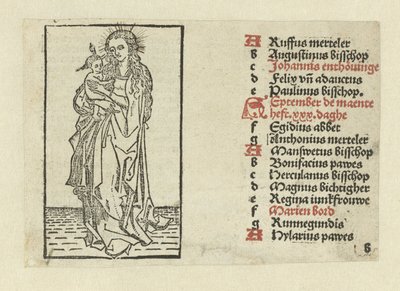 A Ruffus merteler
b Augustinus bisschop
c Johannis enthouinge
d Felix vñ adauctus
e Paulinus bisschop.
September de maente
heft .xxx. daghe
f Egidius abbet
g Anthonius merteler
A Manswetus bisschop
b Bonifacius pawes
c Herculanus bisschop
d Magnus bichtigher
e Regina iunkfrouwe
f Marien bord
g Kunnegundis
A Hylarius pawes
b